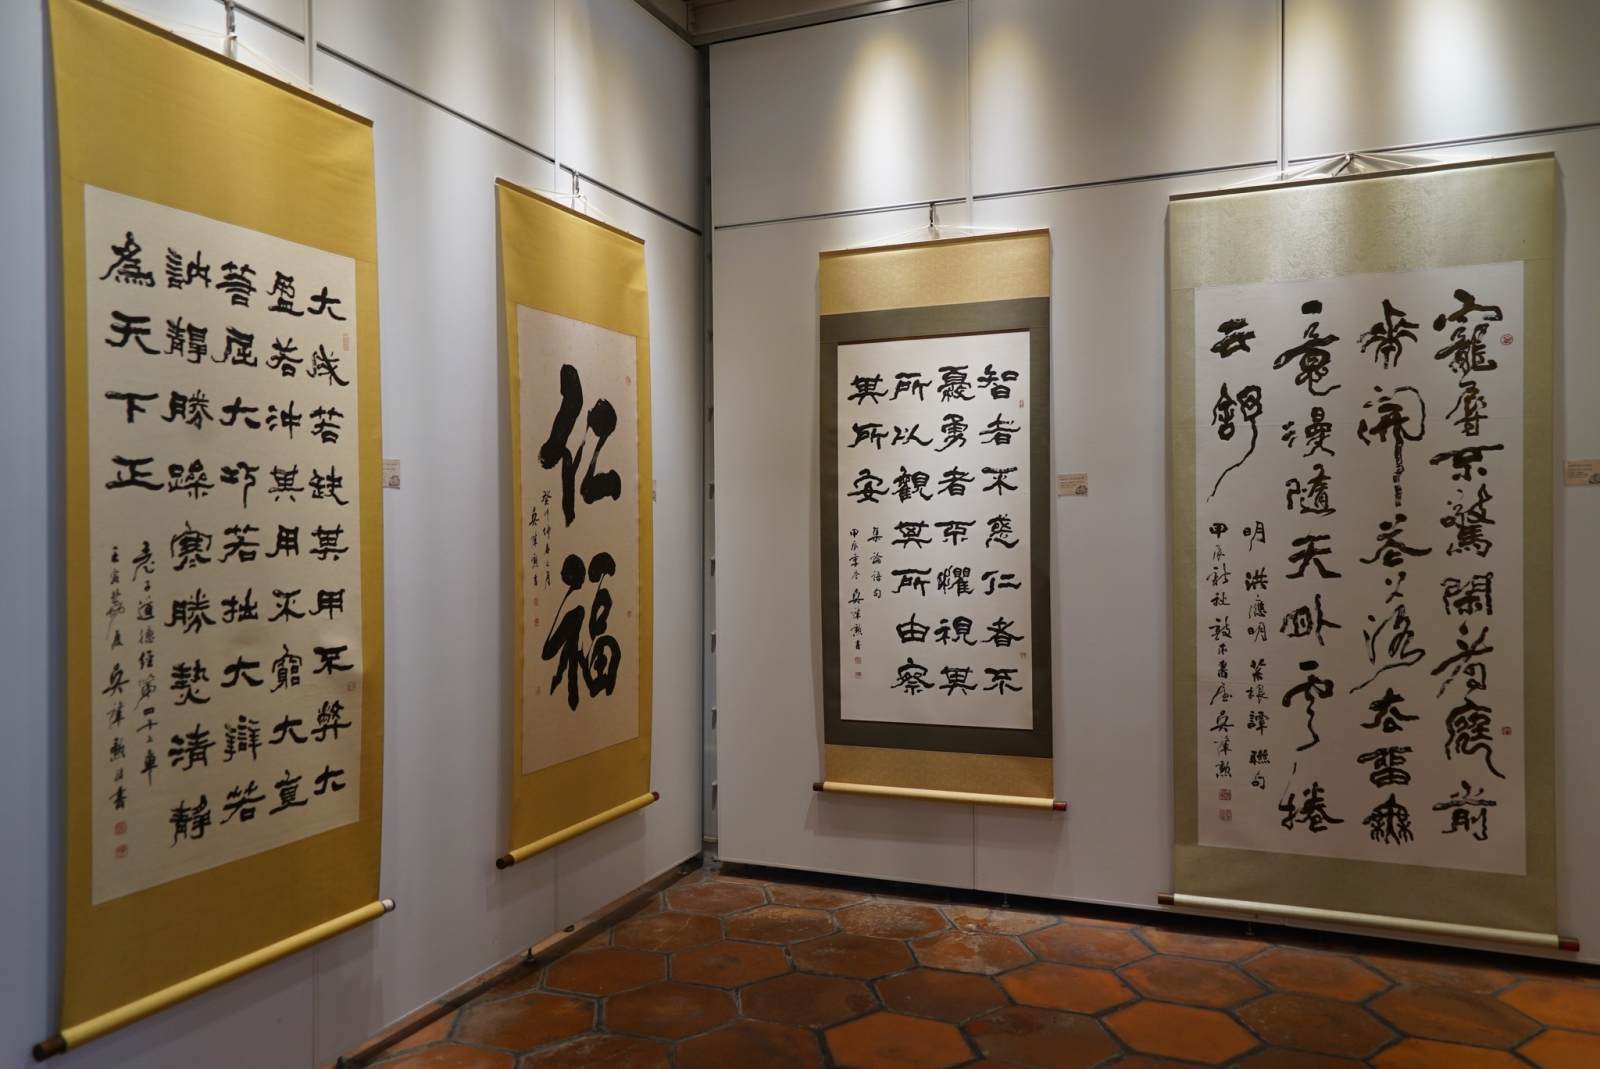 大成若缺其用不弊大
盈若沖其用不窮大直
若屈大巧若拙大辯若
訥靜勝躁寒勝熱清靜
為天下正
老子道德經第四十五章
壬寅荔夏 吳漳勳 書
仁福
癸卯仲春之月
吳漳勳書
智者不惑仁者不
憂勇者不懼視其
所以觀其所由察
其所安
集論語句
甲辰季冬 吳漳勳書
寵辱不驚閒看庭前
花開花落去留無
意漫隨天外雲捲
雲舒
明 洪應明 菜根譚 聯句
甲辰新秋 書屋 吳漳勳